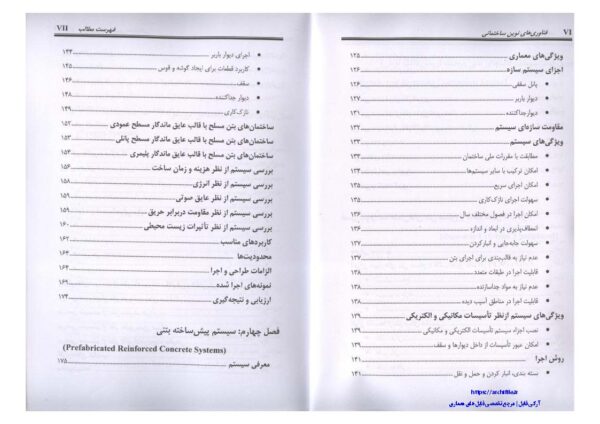 VI فناوری‌های نوین ساختمانی
ویژگی‌های معماری ۱۲۵
اجزای سیستم سازه ۱۲۶
• پانل سقفی ۱۲۶
• دیوار باربر ۱۲۷
• دیوارجداکننده ۱۳۱
مقاومت سازه‌ای سیستم ۱۳۲
ویژگی‌های سیستم ۱۳۳
• مطابقت با مقررات ملی ساختمان ۱۳۳
• امکان ترکیب با سایر سیستم‌ها ۱۳۴
• امکان اجرای سریع ۱۳۵
• سهولت اجرای نازک‌کاری ۱۳۵
• امکان اجرا در فصول مختلف سال ۱۳۶
• انعطاف‌پذیری در ابعاد و اندازه ۱۳۶
• سهولت جابه‌جایی و انبارکردن ۱۳۷
• عدم نیاز به قالب‌بندی برای اجرای بتن ۱۳۷
• قابلیت اجرا در طبقات متعدد ۱۳۸
• عدم نیاز به مواد جداسازنده ۱۳۸
• قابلیت اجرا در مناطق آسیب دیده ۱۳۸
ویژگی‌های سیستم ازنظر تأسیسات مکانیکی و الکتریکی ۱۳۹
• نصب اجزاء سیستم تأسیسات الکتریکی و مکانیکی ۱۳۹
• امکان عبور تأسیسات از داخل دیوارها و سقف ۱۳۹
روش اجرا ۱۴۱
• بسته بندی، انبار کردن و حمل و نقل ۱۴۱
https://archifile.ir
آرکی فایل | مرجع تخصصی فایل های معماری
فهرست مطالب VII
• اجرای دیوار باربر ۱۴۳
• کاربرد قطعات برای ایجاد گوشه و قوس ۱۴۵
• سقف ۱۴۶
• دیوار جداکننده ۱۴۸
• نازک‌کاری ۱۴۹
ساختمان‌های بتن مسلح با قالب عایق ماندگار مسطح عمودی ۱۵۲
ساختمان‌های بتن مسلح با قالب عایق ماندگار مسطح پانلی ۱۵۳
ساختمان‌های بتن مسلح با قالب عایق ماندگار پلیمری ۱۵۴
بررسی سیستم از نظر هزینه و زمان ساخت ۱۵۶
بررسی سیستم از نظر انرژی ۱۵۸
بررسی سیستم از نظر عایق صوتی ۱۵۹
بررسی سیستم از نظر مقاومت دربرابر حریق ۱۵۹
بررسی سیستم از نظر تأثیرات زیست محیطی ۱۶۰
کاربردهای مناسب ۱۶۲
محدودیت‌ها ۱۶۳
الزامات طراحی و اجرا ۱۶۴
نمونه‌های اجرا شده ۱۶۹
ارزیابی و نتیجه‌گیری ۱۷۴
فصل چهارم: سیستم پیش‌ساخته بتنی
(Prefabricated Reinforced Concrete Systems)
معرفی سیستم ۱۷۵